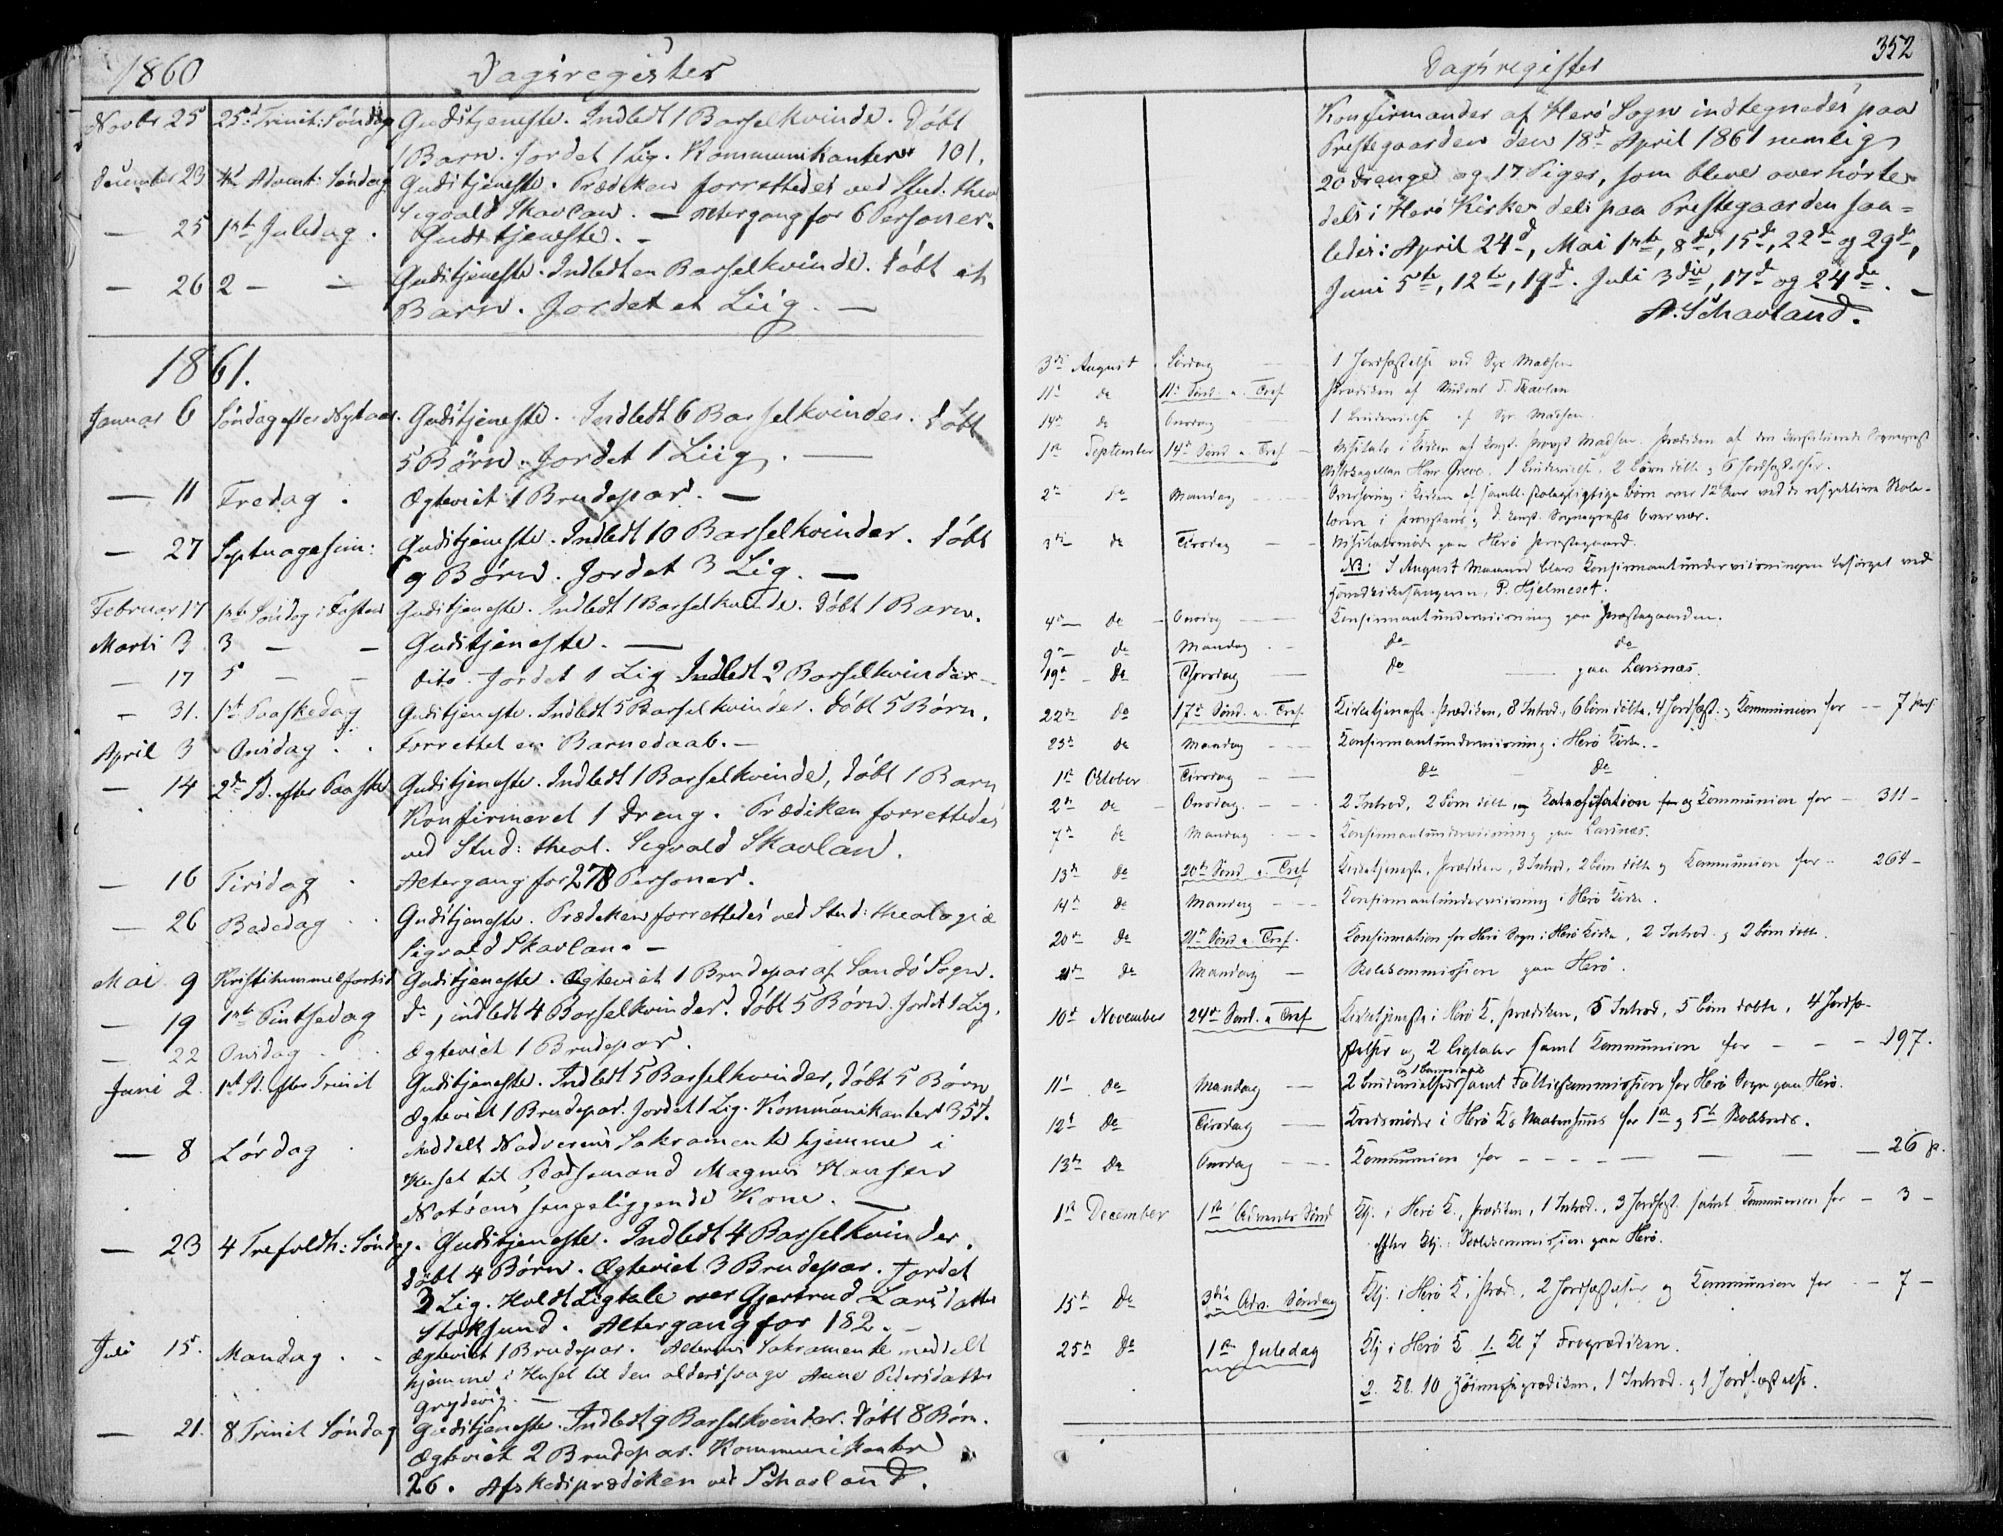 1860 Dagsregister
Novbr 25 25d Trinit: Søndag Gudstjeneste. Indledt 1 Barselkvinde. Døbt
1 Barn. Jordet 1 Lig. Kommunikanter 101.
December 23 4d Advent: Søndag Gudstjeneste. Prædiken forrettedes ved Stud: theol
Sigvald Skavlan. — Altergang for 6 Personer.
— 25 1ste Juledag. Gudstjeneste. —
— 26 2 — — Gudstjeneste. Indledt en Barselkvinde. Døbt et
Barn. Jordet et Liig. —
1861.
Januar 6 Søndag efter Nytaar. Gudstjeneste. Indledt 6 Barselkvinder. Døbt
5 Børn. Jordet 1 Liig. —
— 11 Fredag. Ægteviet 1 Brudepar. —
— 27 Septuagesim: Gudstjeneste. Indledt 10 Barselkvinder. Døbt
9 Børn. Jordet 3 Lig. —
Februar 17 1ste Søndag i Fasten Gudstjeneste. Indledt 1 Barselkvinde. Døbt 1 Barn.
Marts 3 3 — — Gudstjeneste. —
— 17 5 — — dito. Jordet 1 Lig Indledt 2 Barselkvinder —
— 31. 1ste Paaskedag Gudstjeneste. Indledt 5 Barselkvinder. Døbt 5 Børn.
April 3 Onsdag. . Forrettet en Barnedaab. —
— 14 2d S. efter Paaske Gudstjeneste. Indledt 1 Barselkvinde, Døbt 1 Barn
Konfirmeret 1 Dreng. Prædiken forrettedes
ved Stud: theol. Sigvald Skavlan.
— 16 Tirsdag . Altergang for 278 Personer.
— 26 Bededag . . Gudstjeneste. Prædiken forrettedes ved Stud: theologiæ
Sigvald Skavlan. —
Mai 9 Kristihimmelfartsd Gudstjeneste. Ægteviet 1 Brudepar af Sandø Sogn.
— 19 1ste Pintsedag do, indledt 4 Barselkvinder. Døbt 5 Børn. Jordet 1 Lig.
— 22 Onsdag . . Ægteviet 1 Brudepar.
Juni 2. 1st S. efter Trinit Gudstjeneste. Indledt 5 Barselkvinder, Døbt 5 Børn
Ægteviet 1 Brudepar. Jordet 1 Lig. Kommunikanter 357.
— 8 Lørdag . Meddelt Nadverens Sakramente hjemme i
Huset til Magnus Hansen
sengeliggende Kone. —
— 23 4 Trefoldh: Søndag. Gudstjeneste. Indledt 4 Barselkvinder.
Døbt 4 Børn. Ægteviet 3 Brudepar. Jordet
3 Lig. Holdt Ligtale over Gjertrud Larsdatter
Stoksund. Altergang for 182. —
Juli 15. Mandag. . Ægteviet 1 Brudepar. Alterens Sakramente meddelt
hjemme i Huset til den aldersvage Anne Pedersdatter
Grydevig. —
— 21. 8 Trinit Søndag Gudstjeneste. Indledt 9 Barselkvinder. Døbt 8 Børn.
Ægteviet 2 Brudepar. Kommunikanter
26. Afskedsprædiken ved Schavland.
Dagsregister 352
Konfirmander af Herø Sogn indtegnedes paa
Prestegaarden den 18d April 1861 nemlig
20 Drenge og 17 Piger, som bleve overhørte
dels i Herø Kirke dels paa Prestegaarden saa=
ledes: April 24d, Mai 1ste, 8de, 15de, 22de og 29de,
Juni 5te, 12te, 19de. Juli 3die, 17de og 24de. —
A. Schavland.
3di August Lørdag — 1 Jordfæstelse ved Sgr Madsen
11t do 11t Sønd. e. Tref. Prædiken af Student S. Skavlan
14d do Onsdag — 1 af Sgr. Madsen.
1st September 14d Sønd e. Tref — Visitats i Kirken af Const. Provst Madsen. Prædiken af den Constituerede Sognepræst
Herr Greve. 1 , 2 børn døbte og 6 Jordfæstelser.
2den do Mandag — Overhøring i Kirken af samtl. skolepligtige Børn over 12 Aar ved de respektive Skole-
lærere i Provstens og d. const. Sognepræsts Overvær.
3di do Tirsdag — Visitatsmøde paa Herø Præstegaard.
NB: I August Maaned blev Konfirmantunderviisningen besørget ved
Hovedkirkesangeren, P. Hjelmeset.
4de — do Onsdag — Confirmantunderviisning paa Præstegaarden.
9de — do Mandag . — do do
19de — do Thorsdag — do — paa Larsnæs.
22de do 17d Sønd. e. Tref. Kirketjeneste, Prædiken, 8 Introd., 6 børn døbte, 4 Jordfæst. og Kommunion for — 7 pers
23de do Mandag — Konfirmantunderviisning i Herø Kirke. —
1st October Tirsdag — do do
2den do Onsdag. — 2 Introd, 2 børn døbt, og Katechisation for og Kommunion for — 311 —
7de do Mandag . — Konfirmantunderviisning paa Larsnæs.
13de do 20de Sønd. e. Tref Kirketjeneste, Prædiken, 3 Introd, 2 børn døbte og Kommunion for — 264 —
14de do Mandag — Confirmantunderviisning i Herø Kirke.
20de do 21de Sønd e. Tref. Confirmation for Herø Sogn i Herø Kirke, 2 Introd. og 2 børn døbte.
21de do Mandag — Skolekommission paa Herø.
10de November 24de Sønd. e Tref Kirketjeneste i Herø K, Prædiken, 5 Introd, 5 børn døbte, 4 Jordfæ-
stelser og 2 Ligtaler samt Kommunion for — — — 197.
11t do Mandag — 2 samt Fattigkommission for Herø Sogn paa Herø.
12te do Tirsdag — Kredsmøder i Herø K. for 1st og 5te Skolekreds.
13de do Onsdag — Kommunion for — — — — 26 p.
1st December 1ste Advents Sønd Ktj. i Herø K., Prædiken, 1 Introd., 3 Jordfæst. samt Kommunion for — 3 —
Efter Ktj. Skolekommission paa Herø.
15de do 3die Adv. Søndag Ktj. i Herø K, Præd., 2 Jordfæstelser og Kommunion for — 7 —
25de do 1ste Juledag Ktj i Herø K 1. Kl 7 Froprædiken.
2. Kl. 10 Høimesseprædiken, 1 Introd. og 1 Jordfæstelse.